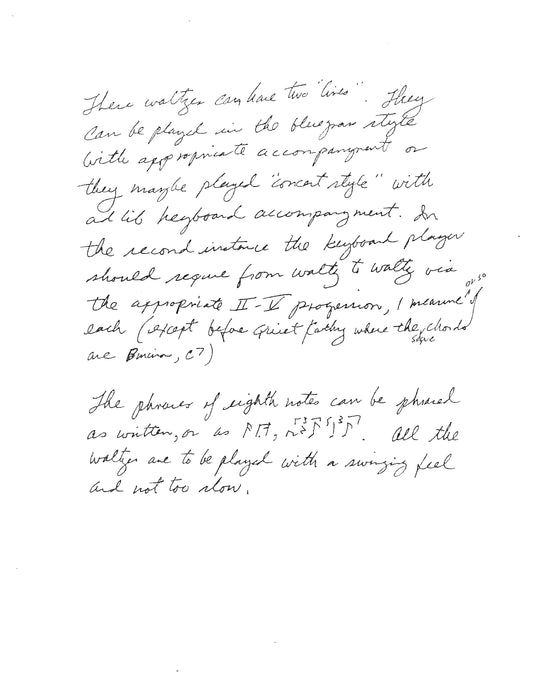 These waltzes can have two "lives". They
can be played in the bluegrass style
with appropriate accompanyment or
they maybe played "concert style" with
ad lib keyboard accompanyment. In
the second instance the keyboard player
should segue from waltz to waltz via
the appropriate II-V progression, 1 measure or so of
each (except before Quiet Kathy where the chords
are Bminor, C7)
The phrases of eighth notes can be phrased
as written, or as . All the
waltzes are to be played with a swinging feel
and not too slow.